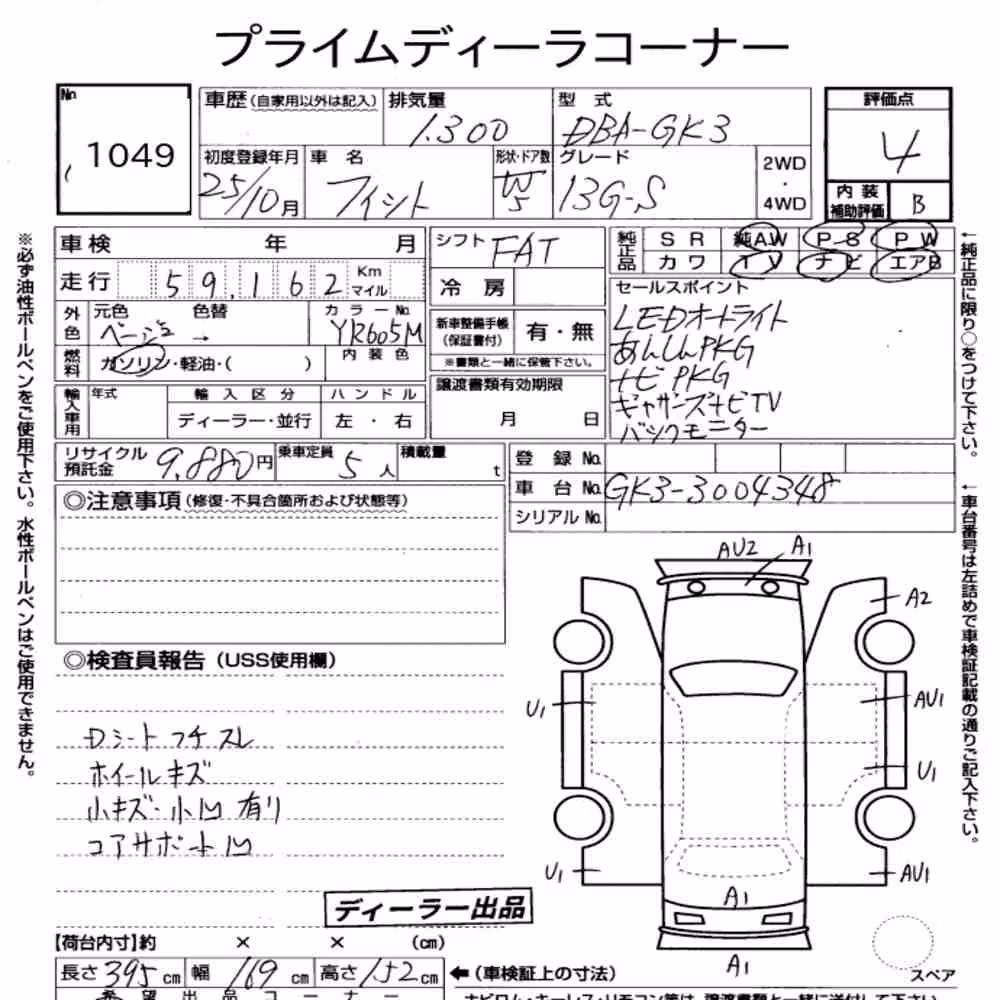 プライムディーラコーナー
No. 1049
車歴(自家用以外は記入) 排気量 1.300 型式 DBA-GK3 評価点 4
初度登録年月 25/10月 車名 フィット 形状・ドア数 W 5 グレード 13G-S 2WD・4WD 内装補助評価 B
車検 年 月 シフト FAT 純正品 SR 純AW P・S PW
カワ TV ナビ エアB
走行 59.162 Km マイル 冷房
セールスポイント
LEDオートライト
あんしんPKG
ナビPKG
ギャザーズナビTV
バックモニター
外色 元色 ベージュ 色替 → カラーNo. YR605M 新車整備手帳(保証書付) 有・無
※書類と一緒に保管下さい。
燃料 ガソリン・軽油・( ) 内装色
譲渡書類有効期限 月 日
輸入車用 年式 輸入区分 ハンドル
ディーラー・並行 左・右
リサイクル預託金 9.880円 乗車定員 5人 積載量 t
登録No.
車台No. GK3-3004348
シリアルNo.
◎注意事項(修復・不具合箇所および状態等)
◎検査員報告(USS使用欄)
Dシートフチスレ
ホイールキズ
小キズ・小凹有り
コアサポート凹
AU2 A1
A2
U1 AV1
U1
U1 A1 AV1
A1
スペア
ディーラー出品
【荷台内寸】約 × × (cm)
長さ 395cm 幅 169cm 高さ 152cm ←(車検証上の寸法)
希望出品コーナー
※必ず油性ボールペンをご使用下さい。水性ボールペンはご使用できません。
←純正品に限り○をつけて下さい。
←車台番号は左詰めで車検証記載の通りご記入下さい。